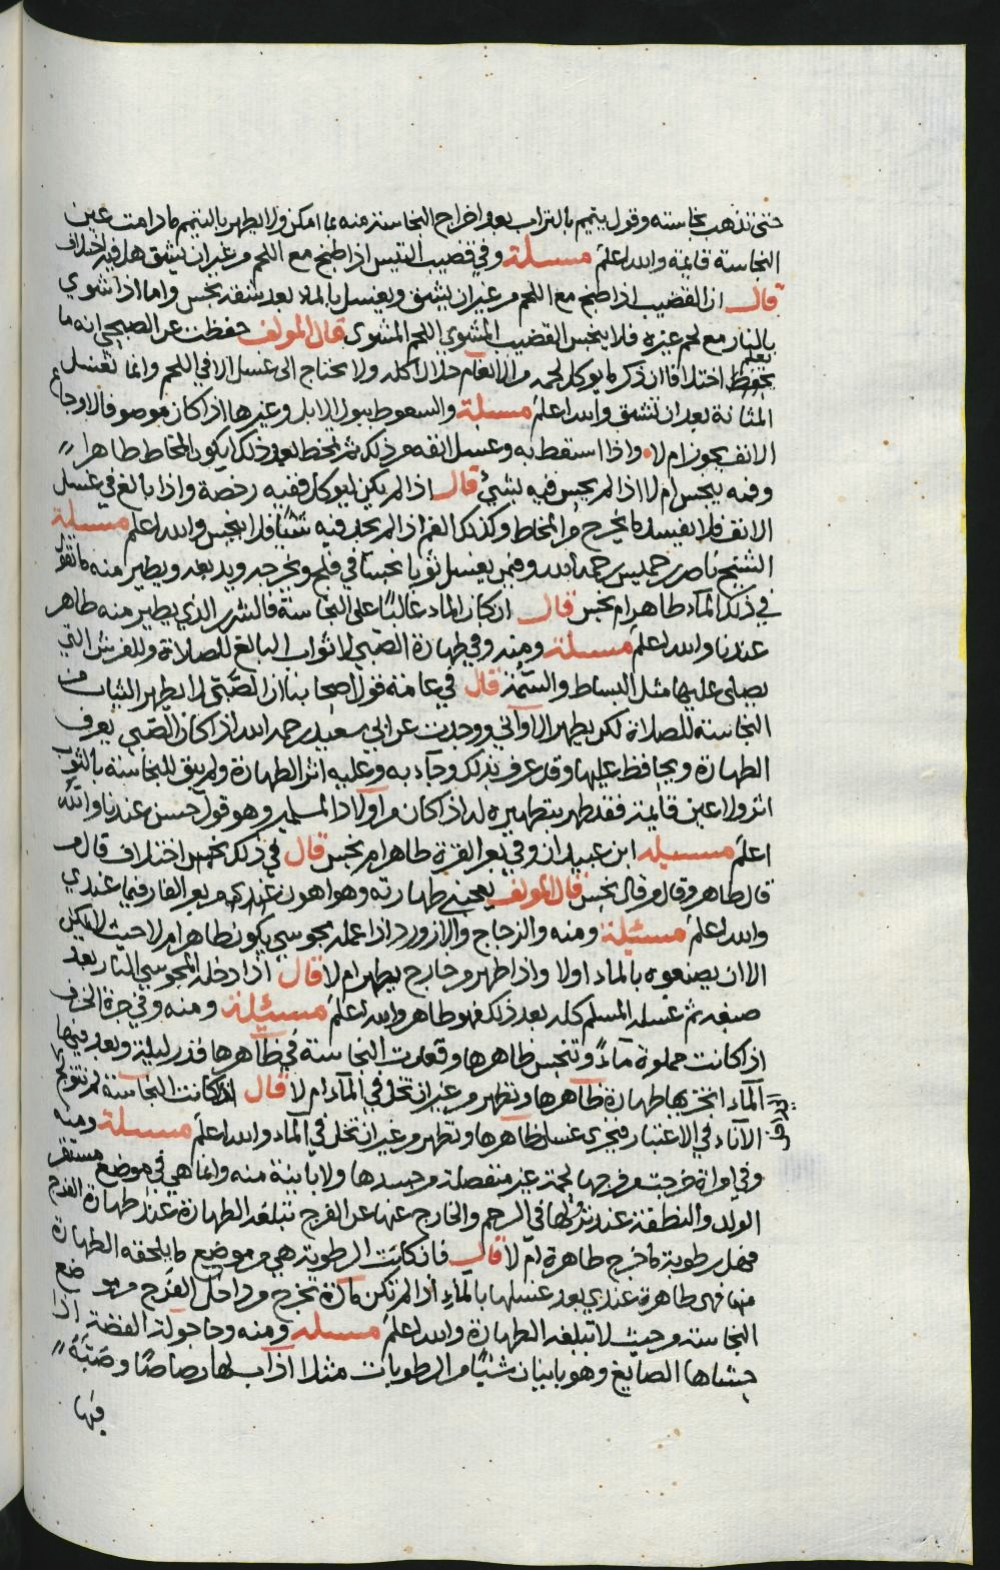 حتى تذهب نجاسته وقول يتمم بالتراب بعد اخراج النجاسة منه بما امكن ولا يطهر بالتيمم ما دامت عين
النجاسة قايمة والله اعلم مسئلة وفي قضيب التيس اذا طبخ مع اللحم من غير ان يشق هل فيه اختلاف
قال ان القضيب اذا طبخ مع اللحم من غير ان يشق ويغسل بالماء بعد شقه نجس واما اذا شوي
بالنار مع لحم غيره فلا ينجس القضيب المشوي اللحم المشوي قال المولف حفظت عن الصبحي انه ما
يحفظ اختلافا ان ذكر ما يوكل لحمه من الانعام حلال اكله ولا يحتاج الى غسل الا في اللحم وانما تغسل
المثانة بعد ان تشق والله اعلم مسئلة والسعوط ببول الابل وغيرها اذا كان موصوفا لاوجاع
الانف يجوز ام لا واذا استقط به وغسل انفه من ذلك ثم نخط بعد ذلك ايكون المخاط طاهرا
وفمه ينجس ام لا اذا لم يحس فيه بشيء قال اذا لم يكن ليوكل ففيه رخصة واذا بالغ في غسل
الانف فلا يفسد ما يخرج من المخاط وكذلك الفم اذا لم يجد فيه شيئا فلا ينجس والله اعلم مسئلة
الشيخ ناصر بن خميس رحمه الله وفيمن يغسل ثوبا نجسا في فلج ويخرجه ويده بعد ويطير منه ما تقول
في ذلك الماء طاهر ام نجس قال ان كان الماء غالبا على النجاسة فالشرر الذي يطير منه طاهر
عندنا والله اعلم مسئلة ومنه وفي طهارة الصبي لاثواب البالغ للصلاة وللفرش التي
يصلى عليها مثل البساط والسمة قال في عامة قول اصحابنا ان الصبي لا يطهر الثياب من
النجاسة للصلاة لكن يطهر الاواني ووجدت عن ابي سعيد رحمه الله اذا كان الصبي يعرف
الطهارة ويحافظ عليها وقد عرف بذلك وجاء به وعليه اثر الطهارة ولم يبق للنجاسة بالثوب
اثر ولا عين قايمة فقد طهر بتطهيره له اذا كان من اولاد المسلمين وهو قول حسن عندنا والله
اعلم مسئله ابن عبيدان وفي بعر القرة طاهر ام نجس قال في ذلك نجس اختلاف قال من
قال طاهر وقال من قال نجس قال المولف يعجبني طهارته وهو اهون عندكم من بعر الفار فيما عندي
والله اعلم مسئلة ومنه والزجاج والازورد اذا عمله مجوسي يكون طاهرا ام لا حيث لا يمكن
الا ان يصنعوه بالماء اولا واذا طهر من خارج يطهر ام لا قال اذا دخله المجوسي النار بعد
صبغه ثم غسله المسلم كله بعد ذلك فهو طاهر والله اعلم مسئيلة ومنه وفي جرة الخزف
اذا كانت مملوة ماء وتنجس ظاهرها وقعدت النجاسة في ظاهرها قدر ليلة وبعد فيها
الماء اتجزيها طهارة ظاهرها وتطهر من غير ان تخل في الماء ام لا قال اذا كانت النجاسة لم تتولج
الداخل
الاناء في الاعتبار فيجزي غسل ظاهرها وتطهر من غير ان تخل في الماء والله اعلم مسئلة ومنه
وفي امراة خرجت من فرجها لحمة غير منفصلة من جسدها ولا باينة منه وانما هي في موضع مستقر
الولد والنطفة عند نزولها في الرحم والخارج عنها عن الفرج تبلغه الطهارة عند طهارة الفرج
فهل رطوبة ما خرج طاهرة ام لا قال فان كانت الرطوبة هي من موضع ما يلحقه الطهارة
منها فهي طاهرة عندي بعد غسلها بالماء اذا لم تكن مادة تخرج من داخل الفرج من موضع
النجاسة من حيث لا تبلغه الطهارة والله اعلم مسئله ومنه وحاجولة الفضة اذا
حشاها الصايغ وهو بانيان شيئا من الرطوبات مثلا اذاب لها رصاصا وصبه
فيها